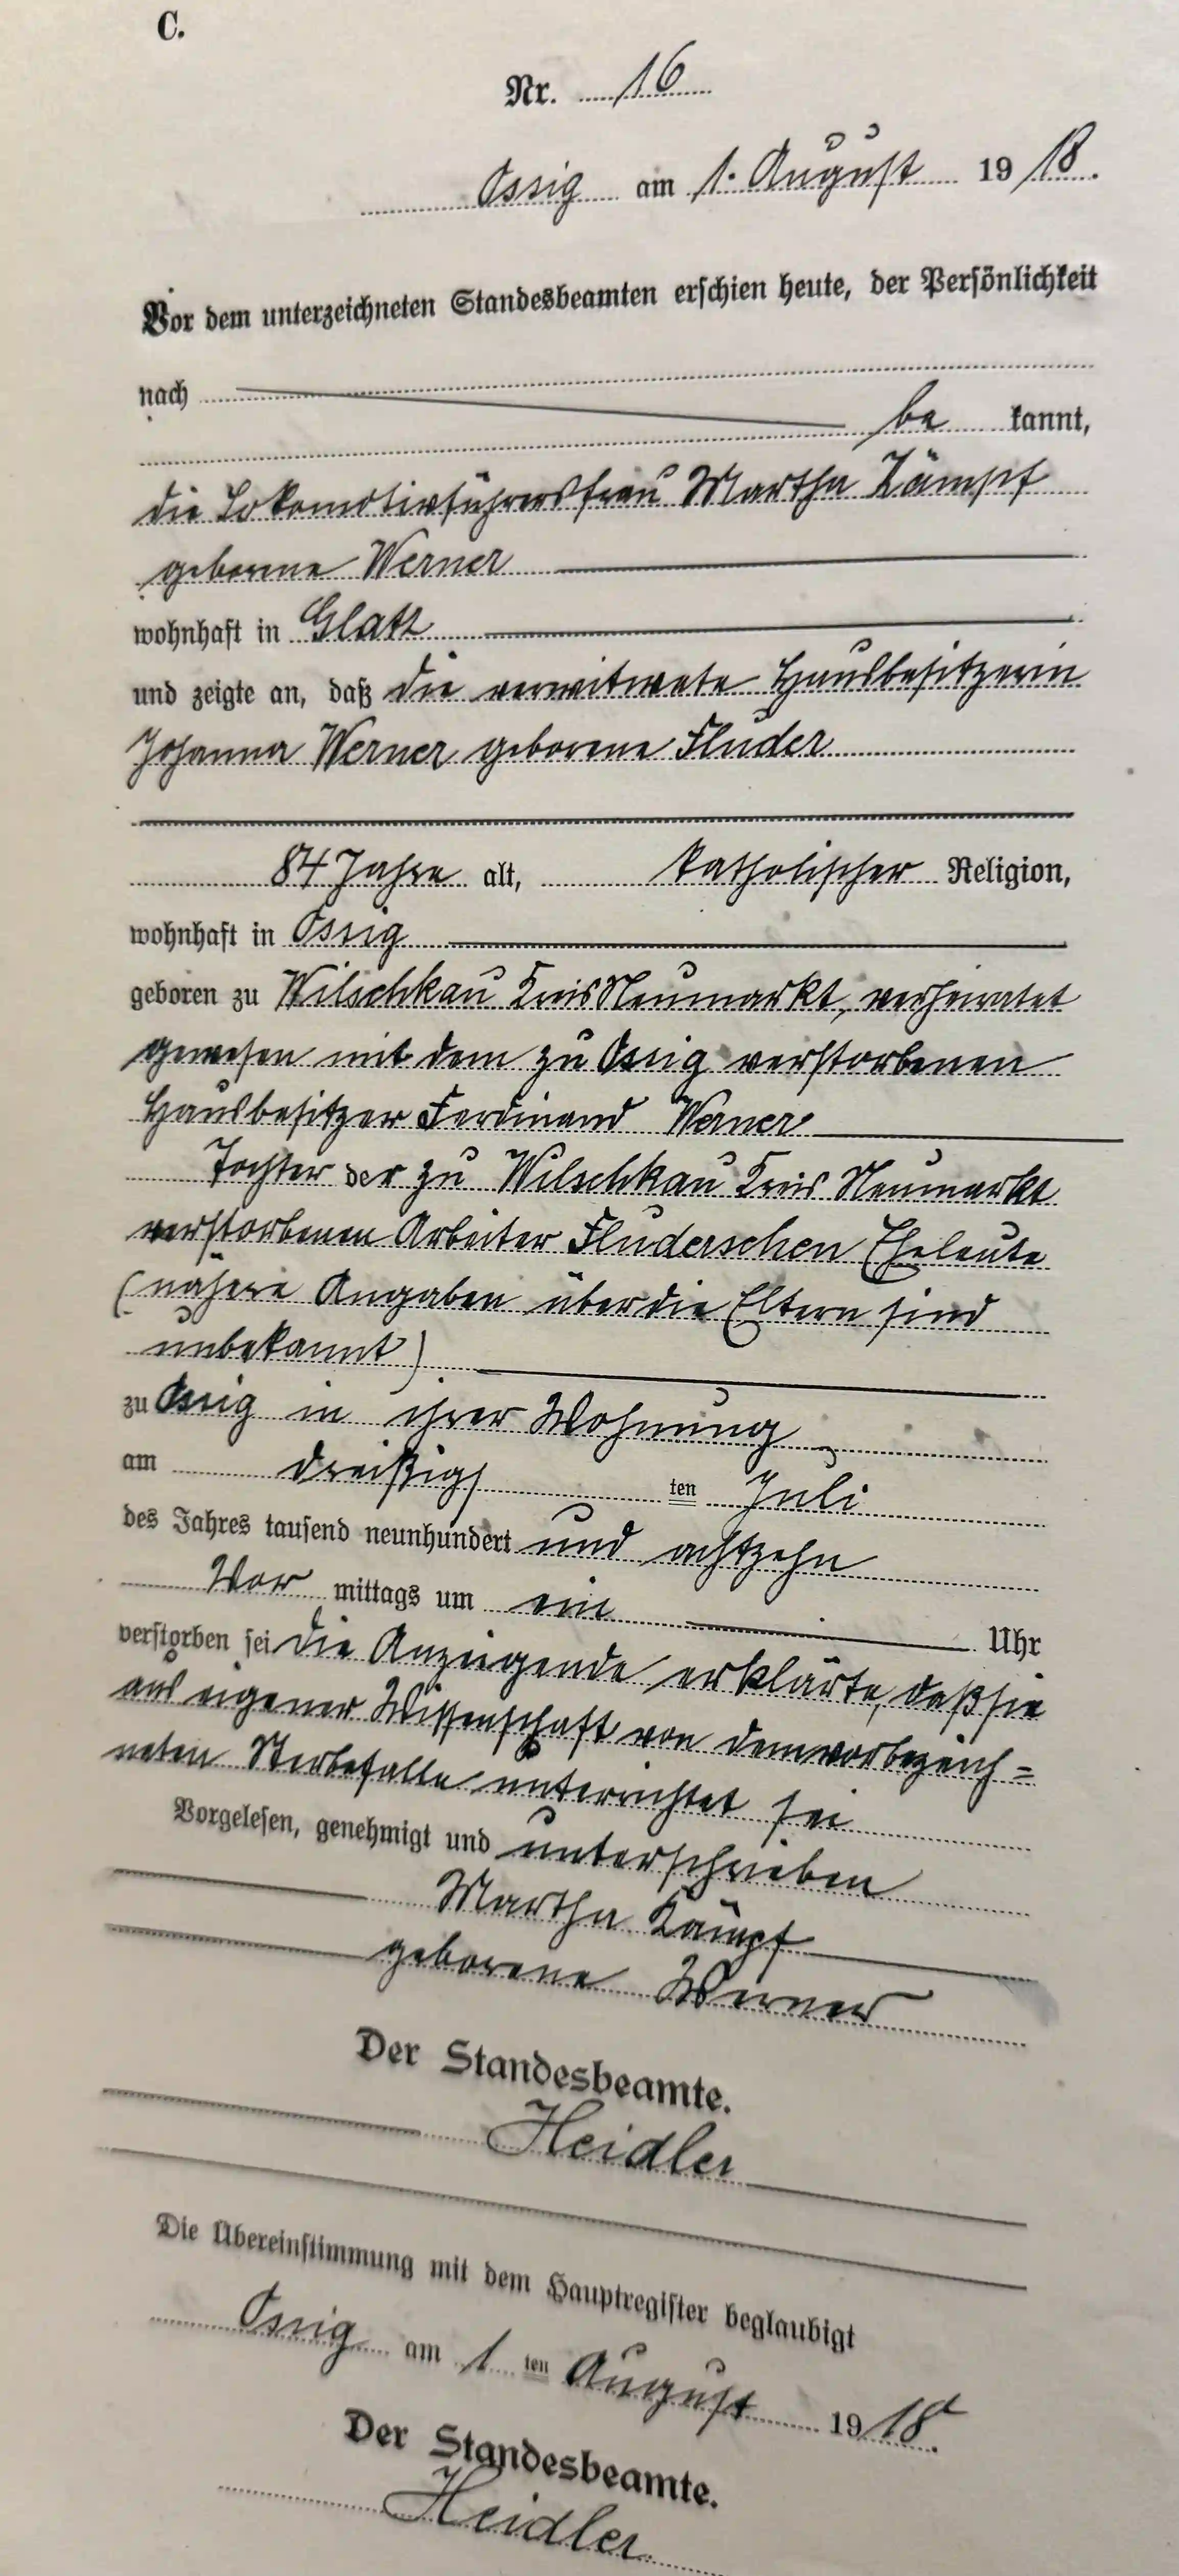 C.
Nr. 16
Ossig am 1. August 1918.
Vor dem unterzeichneten Standesbeamten erschien heute, der Persönlichkeit
nach
be kannt,
die Lokomotivführersfrau Martha Kämpf
geborene Werner
wohnhaft in Glatz
und zeigte an, daß die verwitwete Hausbesitzerin
Johanna Werner geborene Fluder
84 Jahre alt, katholischer Religion,
wohnhaft in Ossig
geboren zu Wilschkau Kreis Neumarkt, verheiratet
gewesen mit dem zu Ossig verstorbenen
Hausbesitzer Ferdinand Werner
Tochter der zu Wilschkau Kreis Neumarkt
verstorbenen Arbeiter Fluderschen Eheleute
(nähere Angaben über die Eltern sind
unbekannt)
zu Ossig in ihrer Wohnung
am dreißigs ten Juli
des Jahres tausend neunhundert und achtzehn
Vor mittags um ein Uhr
verstorben sei die Anzeigende erklärte, daß sie
aus eigener Wissenschaft von dem vorbezeich=
neten Sterbefalle unterrichtet sei
Vorgelesen, genehmigt und unterschrieben
Martha Kämpf
geborene Werner
Der Standesbeamte.
Heidler
Die Übereinstimmung mit dem Hauptregister beglaubigt
Ossig am 1 ten August 1918.
Der Standesbeamte.
Heidler.